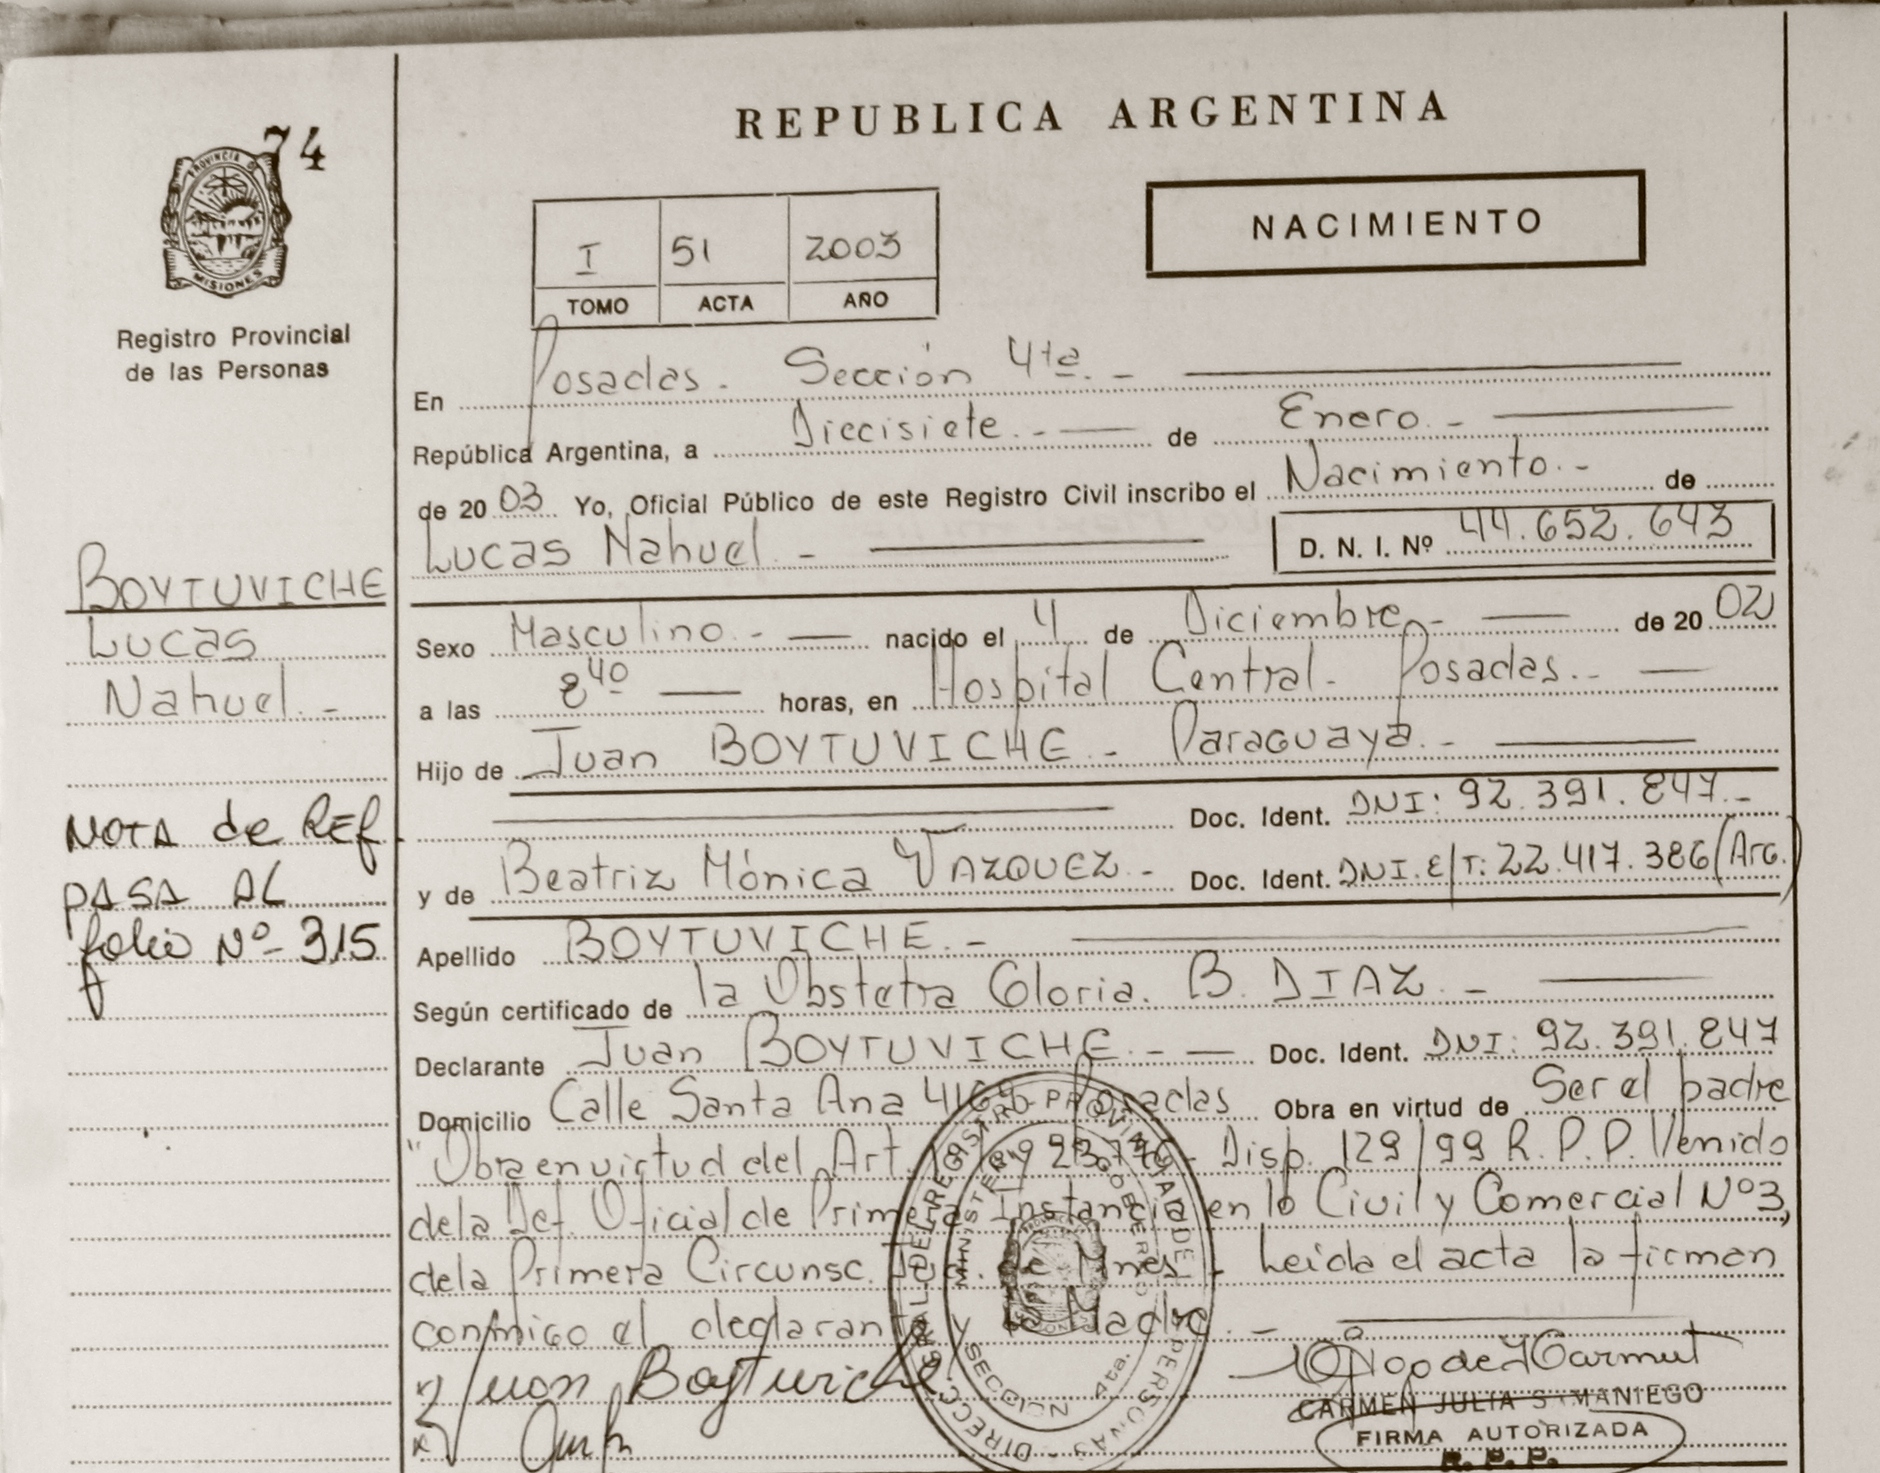 74
PROVINCIA DE
MISIONES
Registro Provincial
de las Personas
REPUBLICA ARGENTINA
I 51 2003
TOMO ACTA AÑO
NACIMIENTO
En Posadas. Sección 4ta. -
República Argentina, a Diecisiete. - de Enero. -
de 2003 Yo, Oficial Público de este Registro Civil inscribo el Nacimiento. - de
Lucas Nahuel. - D. N. I. Nº 44.652.643
BOYTUVICHE
Lucas
Nahuel. -
Sexo Masculino. - nacido el 4 de Diciembre. - de 2002
a las 8 40 horas, en Hospital Central. Posadas. -
Hijo de Juan BOYTUVICHE. - Paraguaya. -
Doc. Ident. DNI: 92.391.847. -
y de Beatriz Mónica VAZQUEZ. - Doc. Ident. DNI.E/T: 22.417.386 (Arg.)
NOTA de REF
PASA AL
folio Nº 315
Apellido BOYTUVICHE. -
Según certificado de la Obstetra Gloria. B. DIAZ. -
Declarante Juan BOYTUVICHE. - Doc. Ident. DNI: 92.391.847
Domicilio Calle Santa Ana Posadas Obra en virtud de Ser el padre
"Obra en virtud del Art. Disp. 129/99 R.P.P. Venido
de la Def. Oficial de Primera Instancia en lo Civil y Comercial Nº 3,
de la Primera Circunsc. de Mnes. - Leída el acta la firman
conmigo el declarante y la Madre. -
Juan Boytuviche
CARMEN JULIA SAMANIEGO
FIRMA AUTORIZADA
R. P. P.
DIRECC. GRAL. DEL REGISTRO PROVINCIAL DE PERSONAS
MINISTERIO DE GOBIERNO
SECCION 4ta.